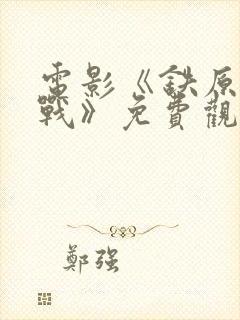 電影《鉄原
戰》免費觀
鄭强